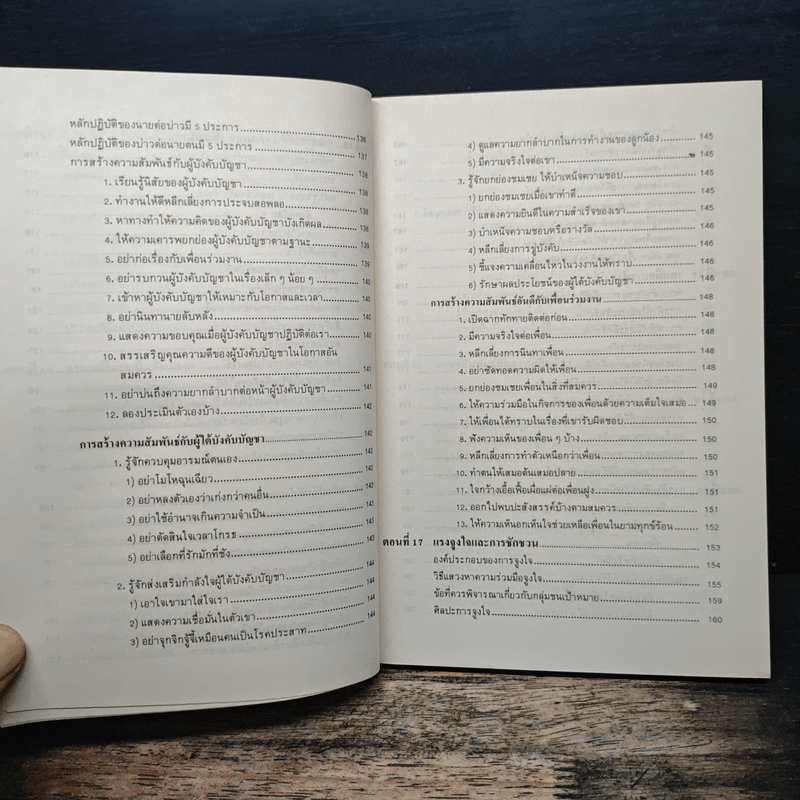 หลักปฏิบัติของนายต่อบ่าวมี 5 ประการ 136
หลักปฏิบัติของบ่าวต่อนายตนมี 5 ประการ 137
การสร้างความสัมพันธ์กับผู้บังคับบัญชา 138
1. เรียนรู้นิสัยของผู้บังคับบัญชา 138
2. ทำงานให้ดีหลีกเลี่ยงการประจบสอพลอ 138
3. หาทางทำให้ความคิดของผู้บังคับบัญชาบังเกิดผล 138
4. ให้ความเคารพยกย่องผู้บังคับบัญชาตามฐานะ 139
5. อย่าก่อเรื่องกับเพื่อนร่วมงาน 139
6. อย่ารบกวนผู้บังคับบัญชาในเรื่องเล็ก ๆ น้อย ๆ 140
7. เข้าหาผู้บังคับบัญชาให้เหมาะกับโอกาสและเวลา 140
8. อย่านินทานายลับหลัง 140
9. แสดงความขอบคุณเมื่อผู้บังคับบัญชาปฏิบัติต่อเรา 140
10. สรรเสริญคุณความดีของผู้บังคับบัญชาในโอกาสอัน
สมควร 141
11. อย่าบ่นถึงความยากลำบากต่อหน้าผู้บังคับบัญชา 141
12. ลองประเมินตัวเองบ้าง 142
การสร้างความสัมพันธ์กับผู้ใต้บังคับบัญชา 142
1. รู้จักควบคุมอารมณ์ตนเอง 142
1) อย่าโมโหฉุนเฉียว 143
2) อย่าหลงตัวเองว่าเก่งกว่าคนอื่น 143
3) อย่าใช้อำนาจเกินความจำเป็น 143
4) อย่าตัดสินใจเวลาโกรธ 143
5) อย่าเลือกที่รักมักที่ชัง 143
2. รู้จักส่งเสริมกำลังใจผู้ใต้บังคับบัญชา 144
1) เอาใจเขามาใส่ใจเรา 144
2) แสดงความเชื่อมั่นในตัวเขา 144
3) อย่าจุกจิกจู้จี้เหมือนคนเป็นโรคประสาท 144
4) ดูแลความยากลำบากในการทำงานของลูกน้อง 145
5) มีความจริงใจต่อเขา 145
3. รู้จักยกย่องชมเชย ให้บำเหน็จความชอบ 145
1) ยกย่องชมเชยเมื่อเขาทำดี 145
2) แสดงความยินดีในความสำเร็จของเขา 145
3) บำเหน็จความชอบหรือรางวัล 146
4) หลีกเลี่ยงการขู่บังคับ 146
5) ชี้แจงความเคลื่อนไหวในวงงานให้ทราบ 146
6) รักษาผลประโยชน์ของผู้ใต้บังคับบัญชา 146
การสร้างความสัมพันธ์อันดีกับเพื่อนร่วมงาน 148
1. เปิดฉากทักทายติดต่อก่อน 148
2. มีความจริงใจต่อเพื่อน 148
3. หลีกเลี่ยงการนินทาเพื่อน 148
4. อย่าซัดทอดความผิดให้เพื่อน 148
5. ยกย่องชมเชยเพื่อนในสิ่งที่สมควร 149
6. ให้ความร่วมมือในกิจการของเพื่อนด้วยความเต็มใจเสมอ 149
7. ให้เพื่อนได้ทราบในเรื่องที่เขารับผิดชอบ 150
8. ฟังความเห็นของเพื่อน ๆ บ้าง 150
9. หลีกเลี่ยงการทำตัวเหนือกว่าเพื่อน 150
10. ทำตนให้เสมอต้นเสมอปลาย 151
11. ใจกว้างเอื้อเฟื้อเผื่อแผ่ต่อเพื่อนฝูง 151
12. ออกไปพบปะสังสรรค์บ้างตามสมควร 151
13. ให้ความเห็นอกเห็นใจช่วยเหลือเพื่อนในยามทุกข์ร้อน 152
ตอนที่ 17 แรงจูงใจและการชักชวน 153
องค์ประกอบของการจูงใจ 153
วิธีแสวงหาความร่วมมือจูงใจ 155
ข้อที่ควรพิจารณาเกี่ยวกับกลุ่มชนเป้าหมาย 159
ศิลปะการจูงใจ 160